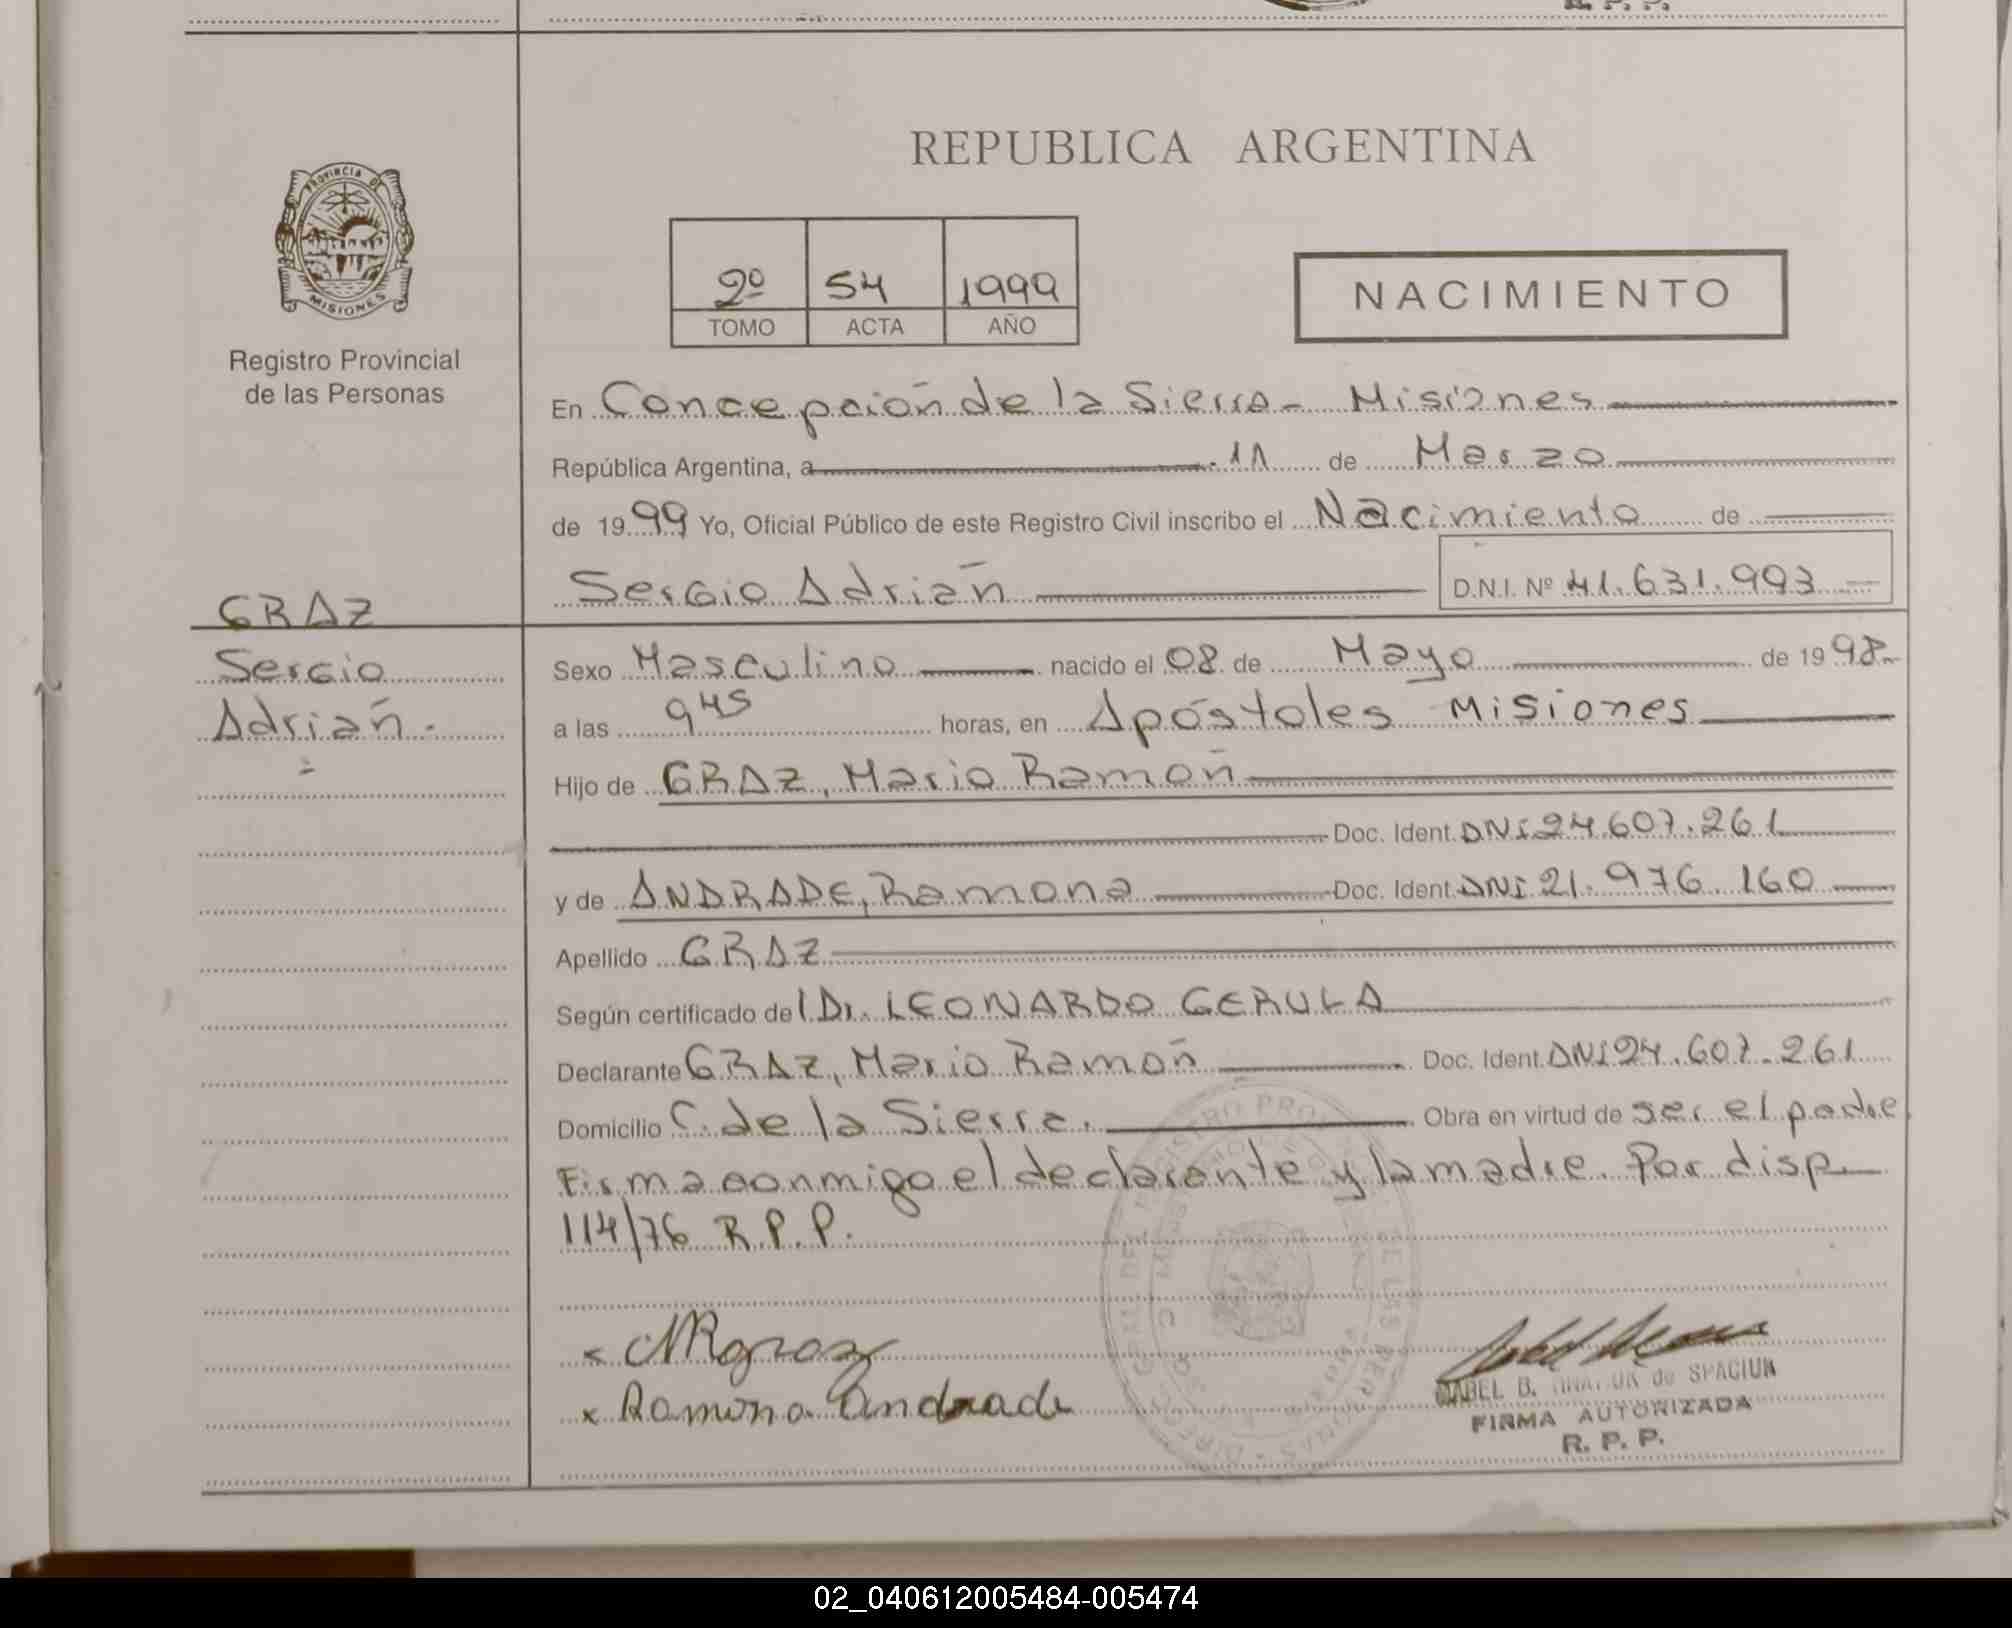 R. P. P.
REPUBLICA ARGENTINA
PROVINCIA DE
MISIONES
Registro Provincial
de las Personas
2º 54 1999
TOMO ACTA AÑO
NACIMIENTO
En Concepción de la Sierra - Misiones
República Argentina, a 11 de Marzo
de 1999 Yo, Oficial Público de este Registro Civil inscribo el Nacimiento de
Sergio Adrián D.N.I. Nº 41.631.993
GRAZ
Sergio
Adrián.
Sexo Masculino nacido el 08 de Mayo de 1998
a las 9 45 horas, en Apóstoles Misiones
Hijo de GRAZ, Mario Ramón
Doc. Ident. DNI 24.607.261
y de ANDRADE, Ramona Doc. Ident. DNI 21.976.160
Apellido GRAZ
Según certificado del Dr. LEONARDO GERULA
Declarante GRAZ, Mario Ramón Doc. Ident. DNI 24.607.261
Domicilio C. de la Sierra. Obra en virtud de ser el padre
Firma conmigo el declarante y la madre. Por disp.
114/76 R.P.P.
x MRgraz
x Ramona Andrade
B. de SPACIUK
FIRMA AUTORIZADA
R. P. P.
02_040612005484-005474